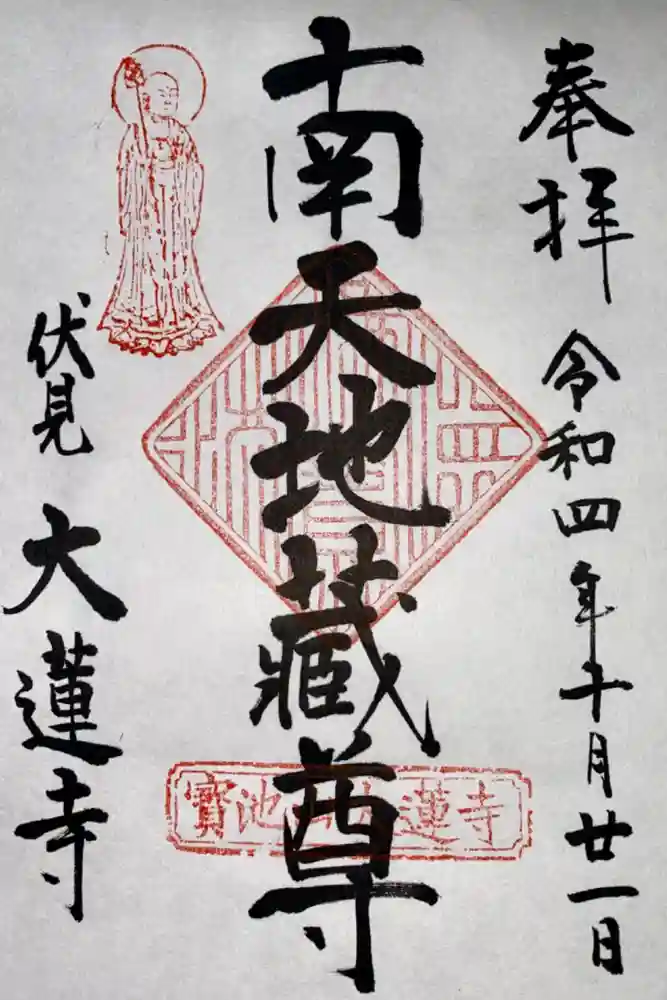 奉拝
令和四年十月廿一日
南天地藏尊
伏見
大蓮寺
寳池山大蓮寺